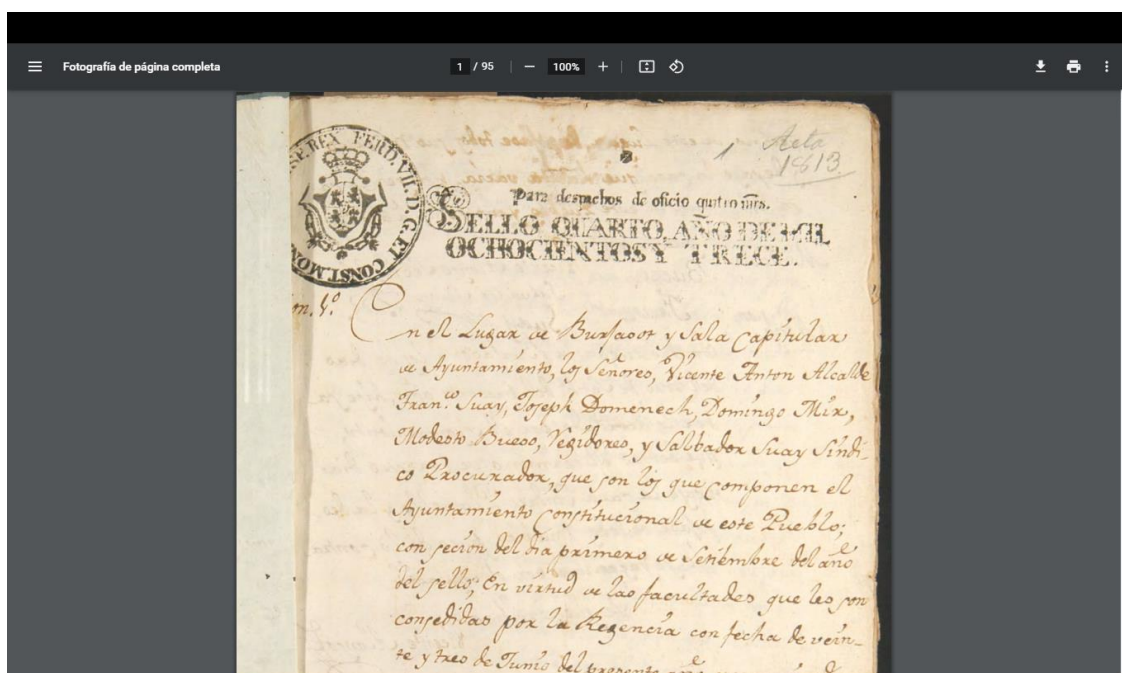 Fotografía de página completa
1 / 95
100%
Acta
1813
FERD. VII. D. G. ET CONST. MON
REX
para despachos de oficio quatro mrs.
SELLO QUARTO, AÑO DE MIL
OCHOCIENTOS Y TRECE.
En el Lugar de Burjasot y Sala Capitular
de Ayuntamiento, los Señores, Vicente Anton Alcalde
Fran.co Suay, Joseph Domenech, Domingo Mir,
Modesto Bueso, Regidores, y Salbador Suay Síndi-
co Procurador, que son los que componen el
Ayuntamiento Constitucional de este Pueblo;
con seción del dia primero de Setiembre del año
del sello; En virtud de las facultades que les son
consedidas por la Regencia con fecha de vein-
te y tres de Junio del presente año